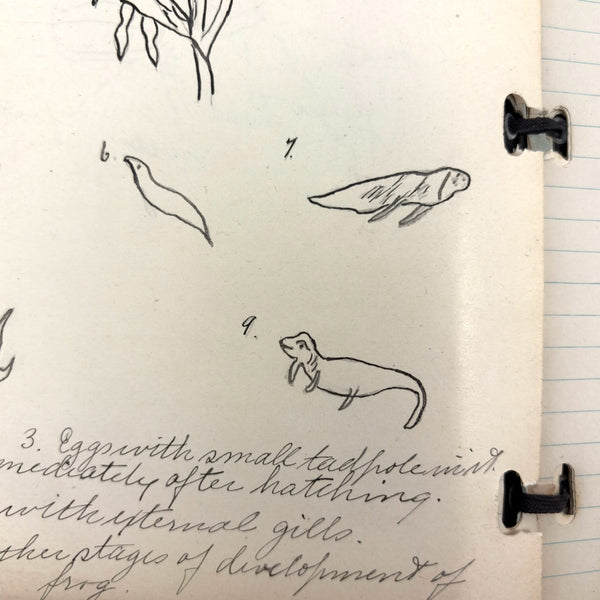 6.
7.
9.
3. Eggs with small tadpole in it.
mediately after hatching.
with external gills.
ther stages of development of
frog.